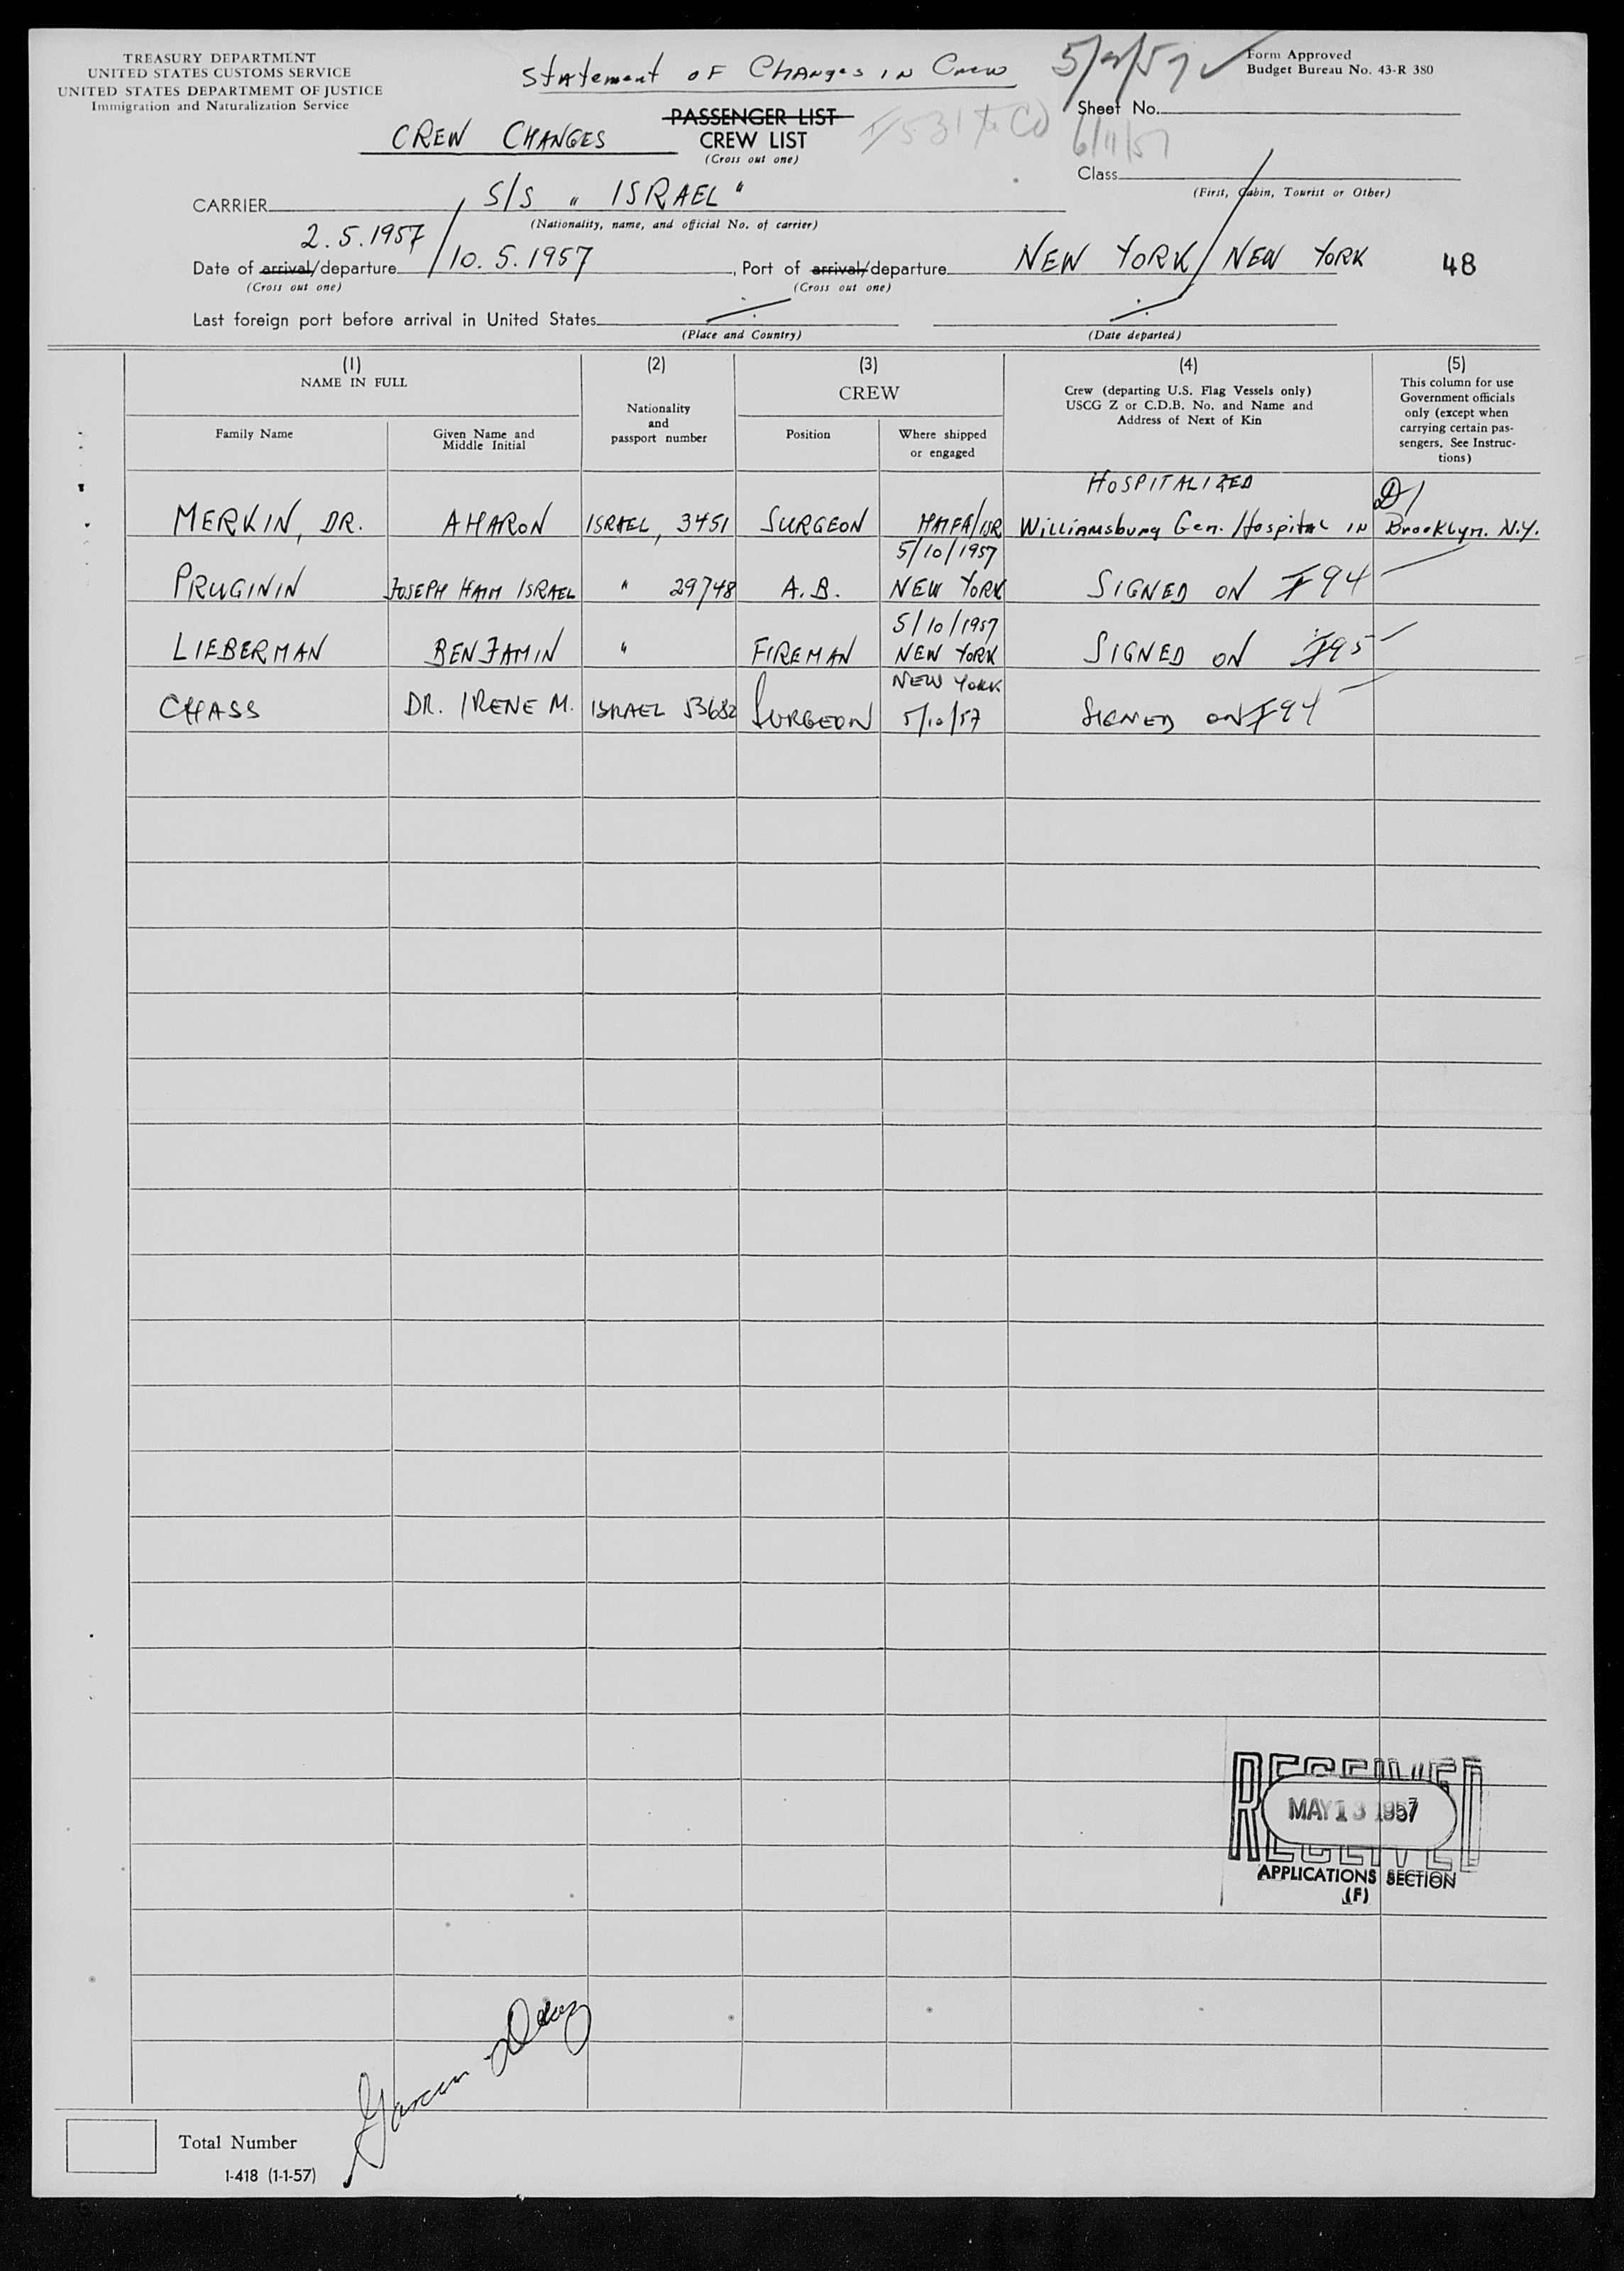 TREASURY DEPARTMENT
UNITED STATES CUSTOMS SERVICE
UNITED STATES DEPARTMEMT OF JUSTICE
Immigration and Naturalization Service
Statement OF Changes IN Crew
Form Approved
Budget Bureau No. 43-R 380
Sheet No.
CREW CHANGES
PASSENGER LIST
CREW LIST
(Cross out one)
6/11/57
Class
(First, Cabin, Tourist or Other)
CARRIER S/S " ISRAEL "
(Nationality, name, and official No. of carrier)
2.5.1957 /
Date of arrival/departure 10.5.1957, Port of arrival/departure NEW YORK / NEW YORK
48
(Cross out one) (Cross out one)
Last foreign port before arrival in United States
(Place and Country) (Date departed)
(1) (2) (3) (4) (5)
NAME IN FULL
Family Name
Given Name and
Middle Initial
Nationality
and
passport number
CREW
Position
Where shipped
or engaged
Crew (departing U.S. Flag Vessels only)
USCG Z or C.D.B. No. and Name and
Address of Next of Kin
This column for use
Government officials
only (except when
carrying certain pas-
sengers. See Instruc-
tions)
HOSPITALIZED
MERKIN, DR. AHARON ISRAEL, 3451 SURGEON HAIFA/ISR Williamsburg Gen. Hospital IN Brooklyn. N.Y.
5/10/1957
PRUGININ JOSEPH HAIM ISRAEL " 29748 A.B. NEW YORK SIGNED ON I94
5/10/1957
LIEBERMAN BENJAMIN " FIREMAN NEW YORK SIGNED ON I95
NEW YORK
CHASS DR. IRENE M. ISRAEL 53682 SURGEON 5/10/57 SIGNED ON I94
RECEIVED
MAY 13 1957
RECEIVED
APPLICATIONS SECTION
(F)
Total Number
I-418 (1-1-57)